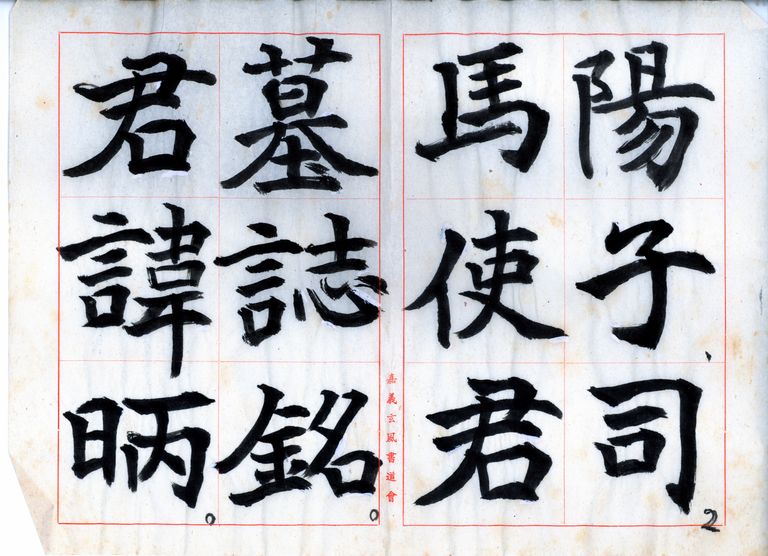 陽子司
馬使君
墓誌銘
君諱昞
嘉義玄風書道會
2